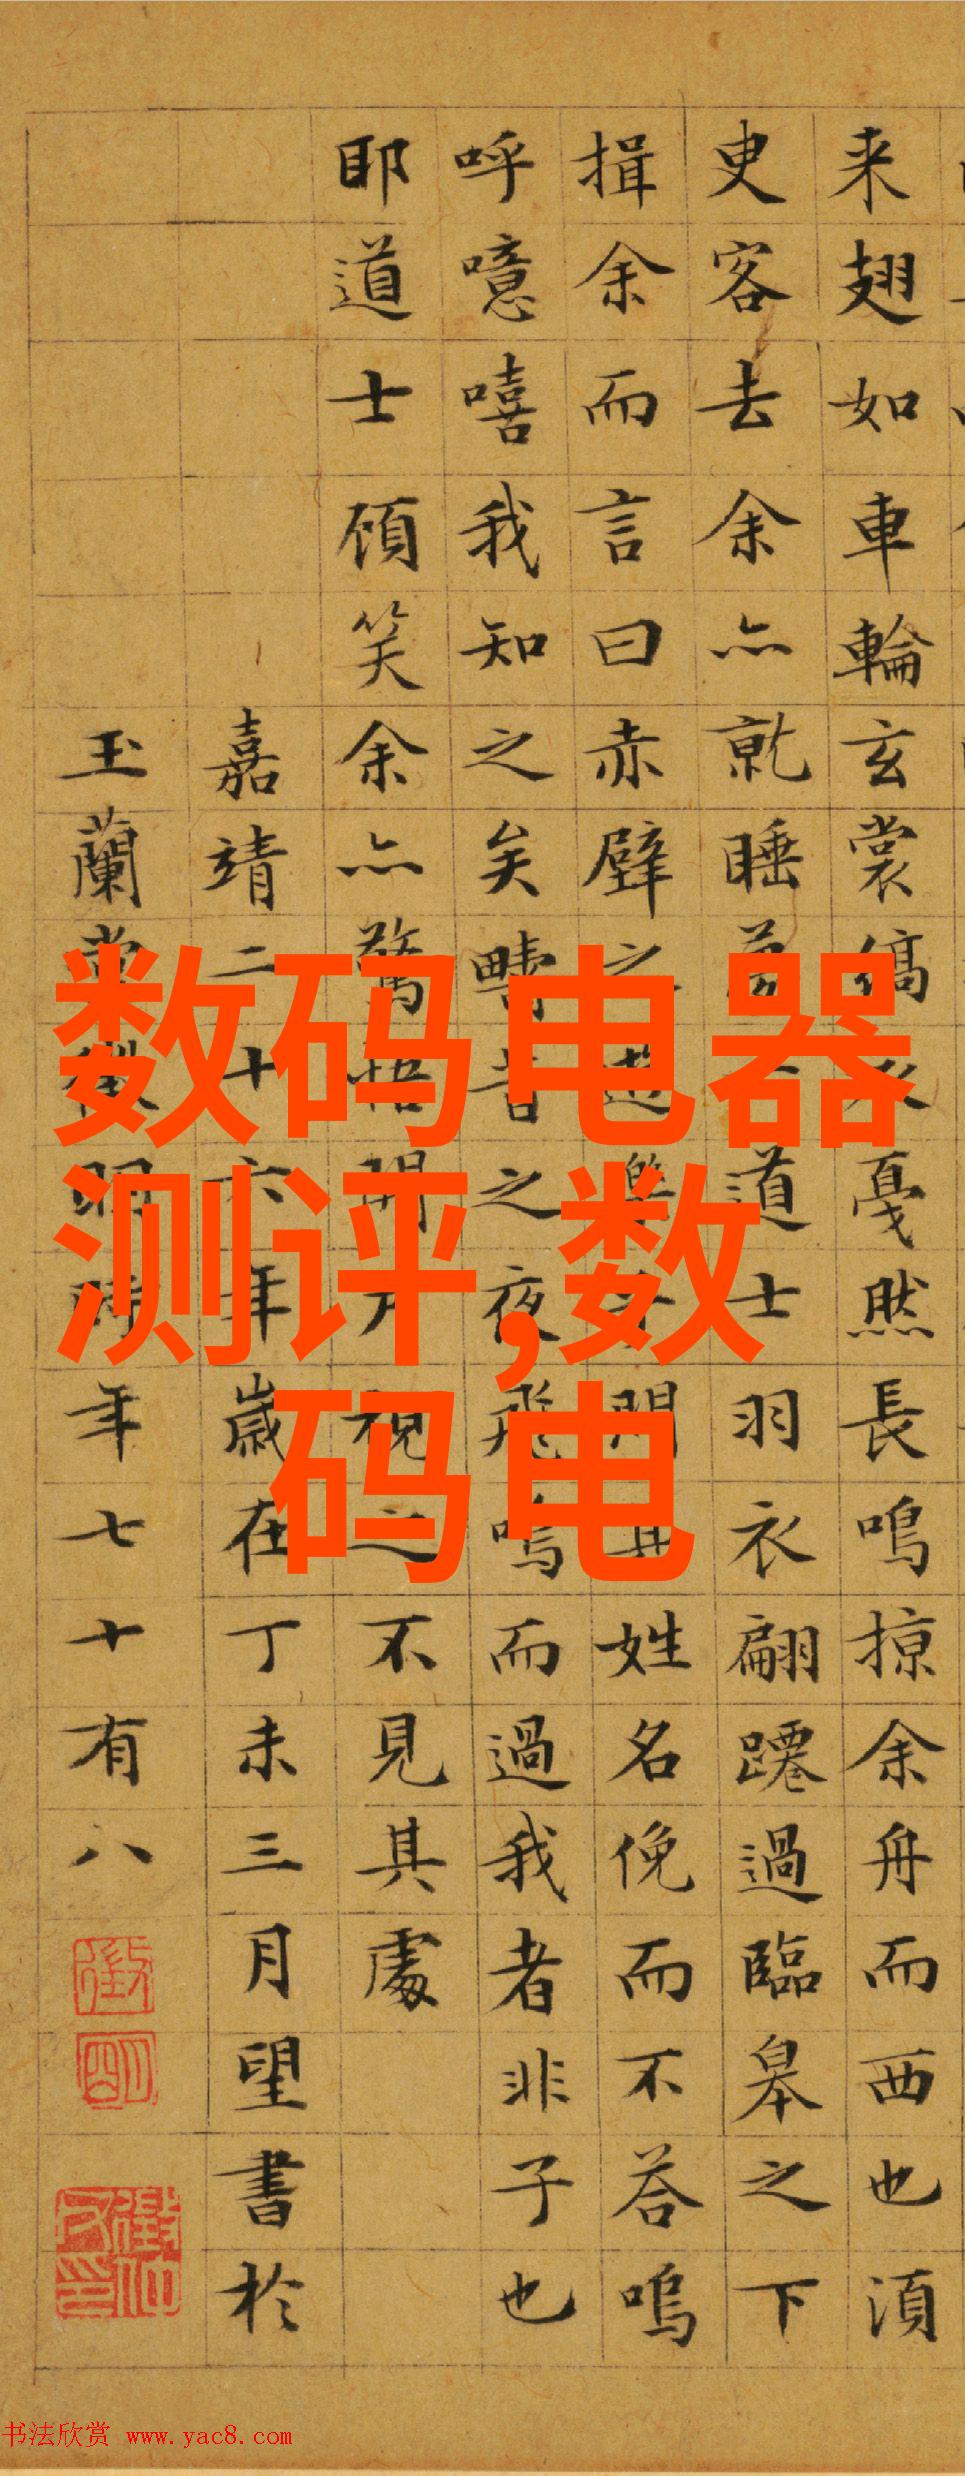 来翅如車輪玄裳縞衣戞然長鳴掠余舟而西也須
臾客去余亦就睡夢一道士羽衣翩躚過臨皋之下
揖余而言曰赤壁之遊樂乎問其姓名俛而不荅嗚
呼噫嘻我知之矣疇昔之夜飛鳴而過我者非子也
耶道士顧笑余亦驚悟開户視之不見其處
嘉靖二十六年歲在丁未三月望書於
玉蘭堂徵明時年七十有八
数码电器
测评,数
码电
书法欣赏 www.yac8.com